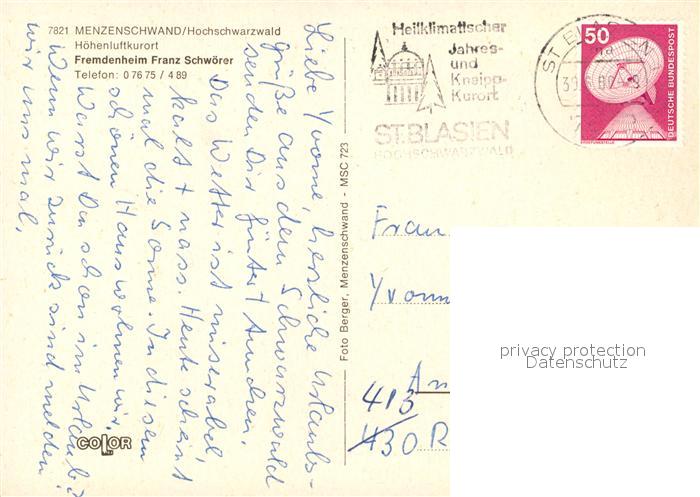 7821 MENZENSCHWAND/Hochschwarzwald
Höhenluftkurort
Fremdenheim Franz Schwörer
Telefon: 0 76 75 / 4 89
Liebe Yvonne, herzliche Urlaubs-
grüße aus dem Schwarzwald
senden Dir Günter +
Das Wetter ist miserabel,
kalt + nass. Heute scheint
mal die Sonne. In diesem
schönen Haus wohnen wir.
Warst Du schon im Urlaub?
Wenn wir zurück sind melden
wir uns mal.
COLOR
Foto Berger, Menzenschwand - MSC 723
Heilklimatischer
Jahres-
und
Kneipp-
Kurort
ST.BLASIEN
HOCHSCHWARZWALD
ST BLASIEN
50
DEUTSCHE BUNDESPOST
ERDFUNKSTELLE
Frau
Yvonn
413
430 R
privacy protection
Datenschutz